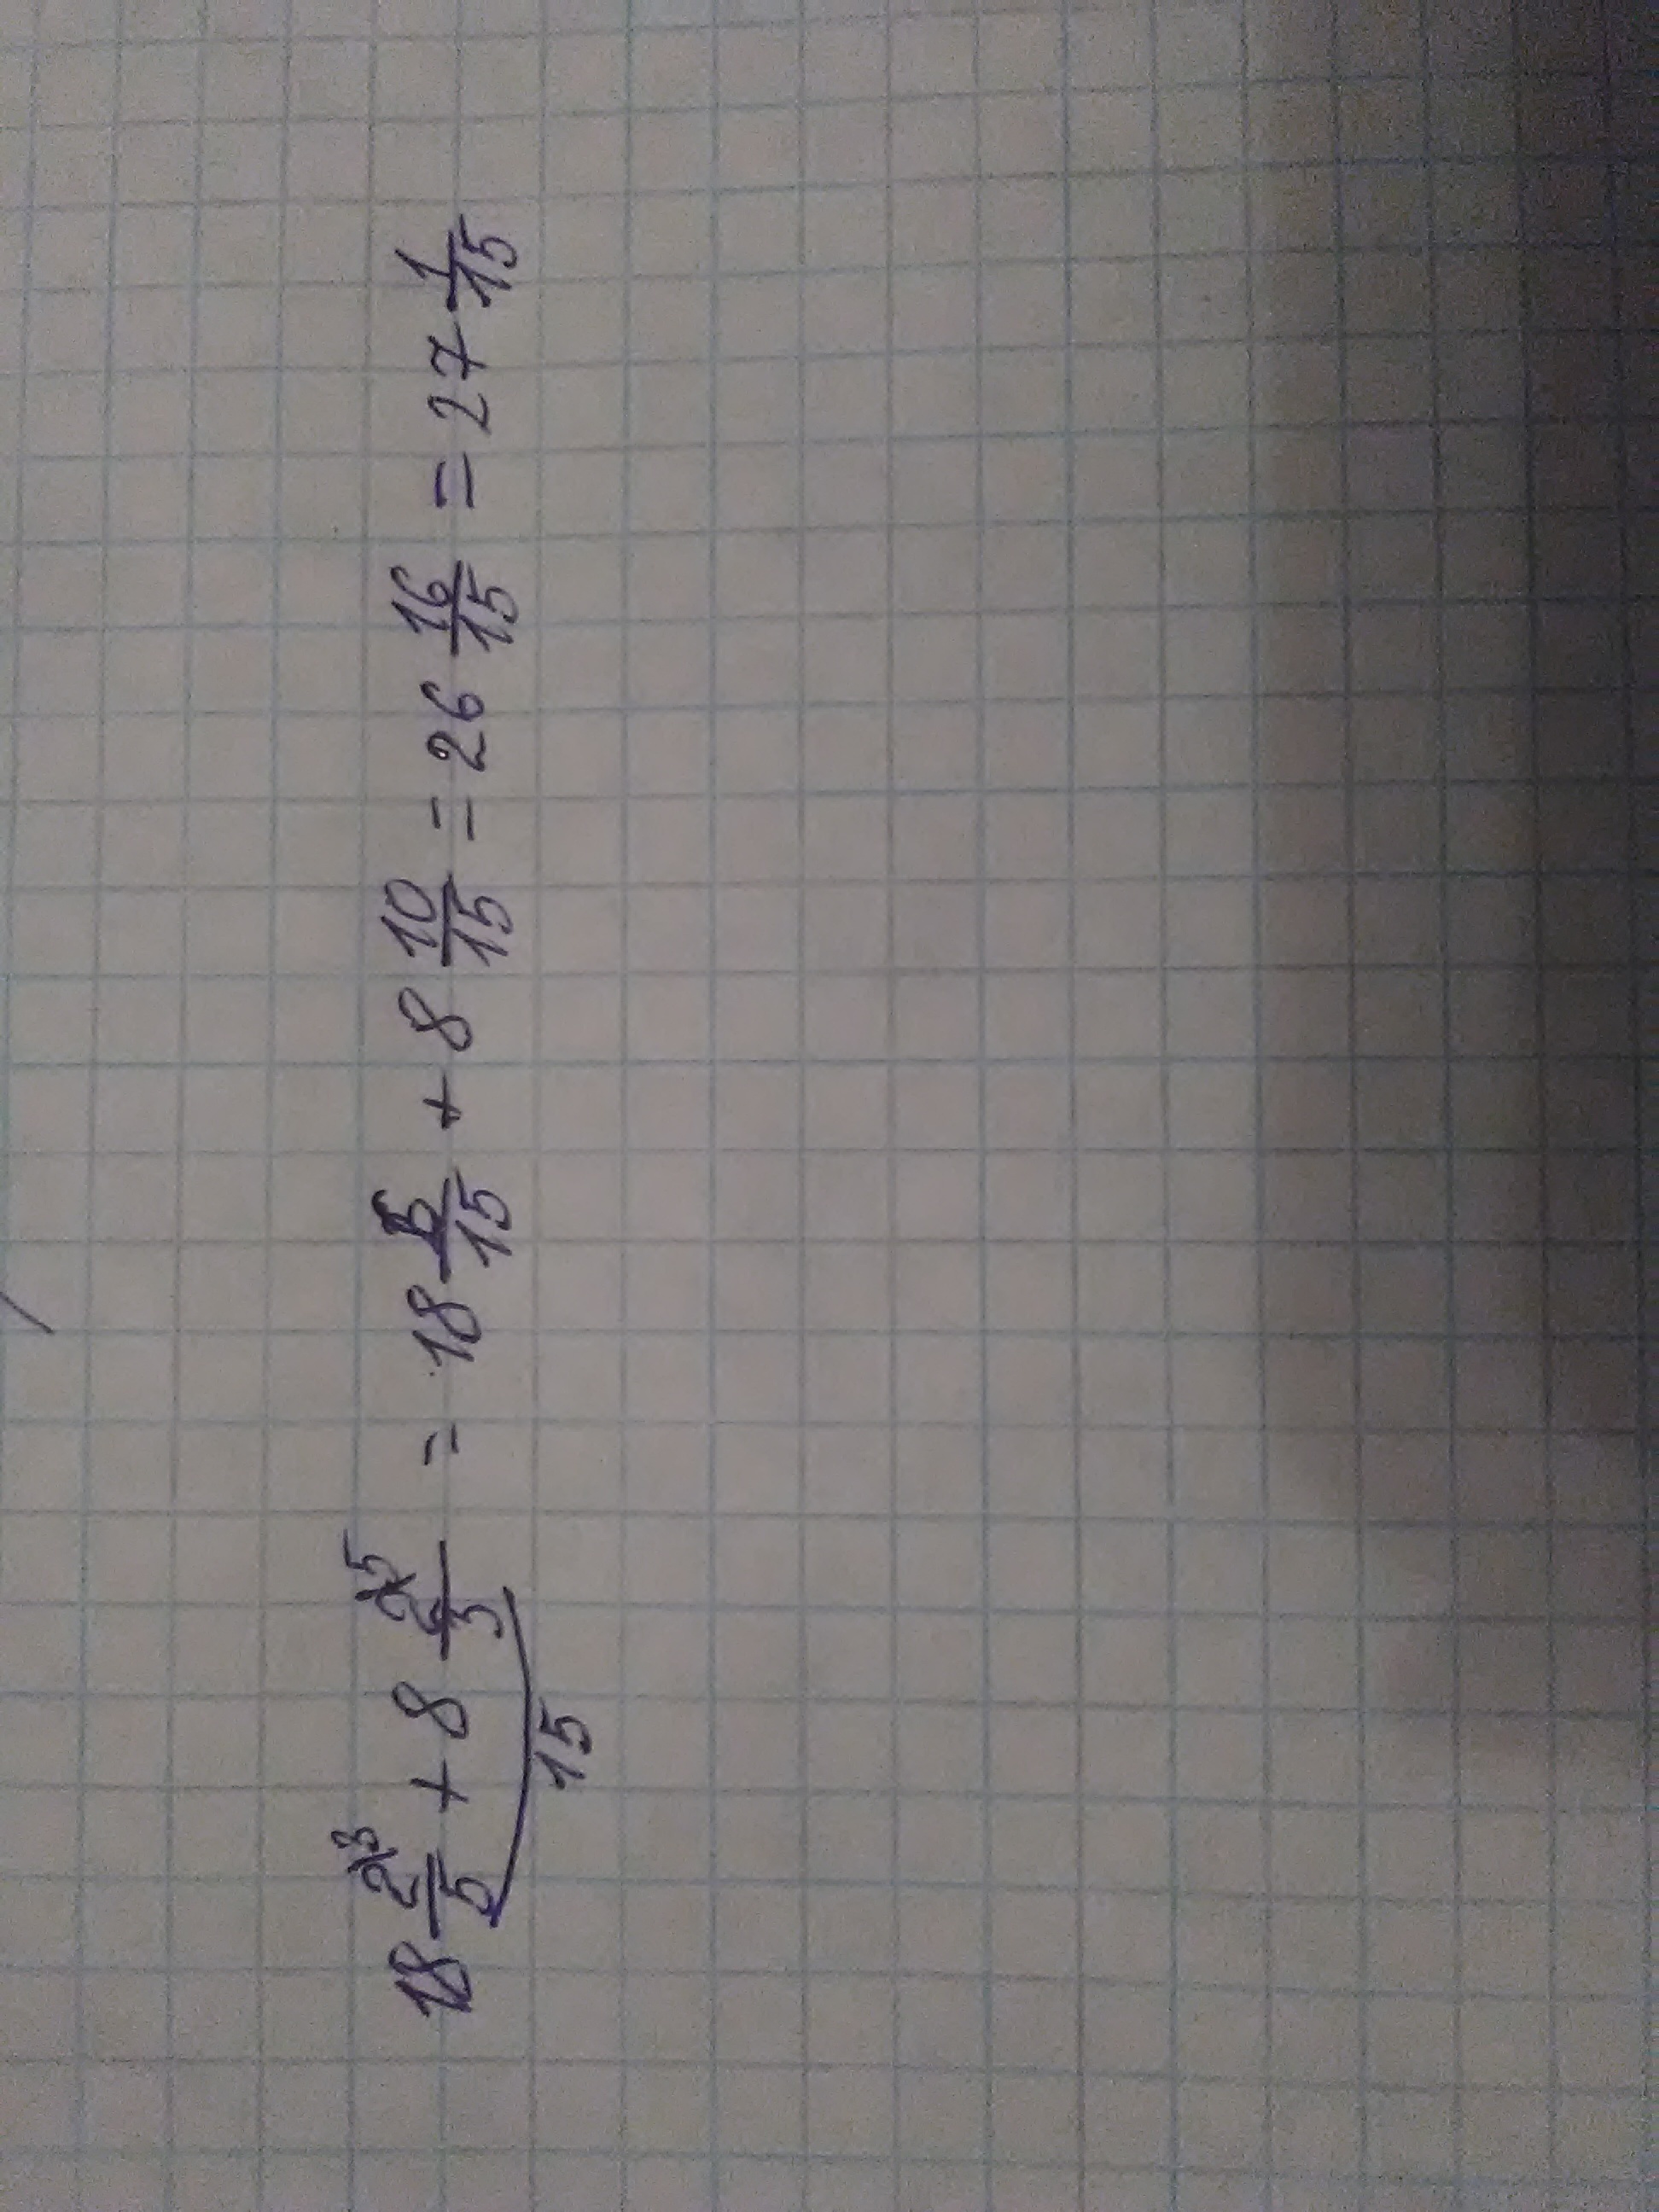 18 2/5 ×3 + 8 2/3 ×5 = 18 6/15 + 8 10/15 = 26 16/15 = 27 1/15
15